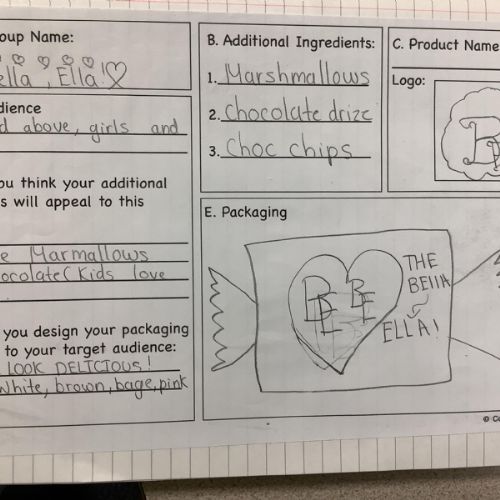 oup Name:
ella, Ella!
dience
d above, girls and
ou think your additional
s will appeal to this
e Marmallows
ocolate( Kids love
you design your packaging
to your target audience:
LOOK DELICIOUS!
white, brown, bage, pink
B. Additional Ingredients:
1. Marshmallows
2. Chocolate drizz
3. Choc chips
C. Product Name
Logo:
E. Packaging
BE BE
THE
BEllA
ELLA!
© C